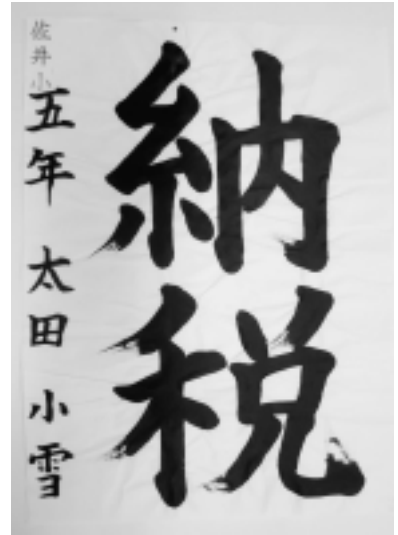 納税
佐井小
五年 太田 小雪